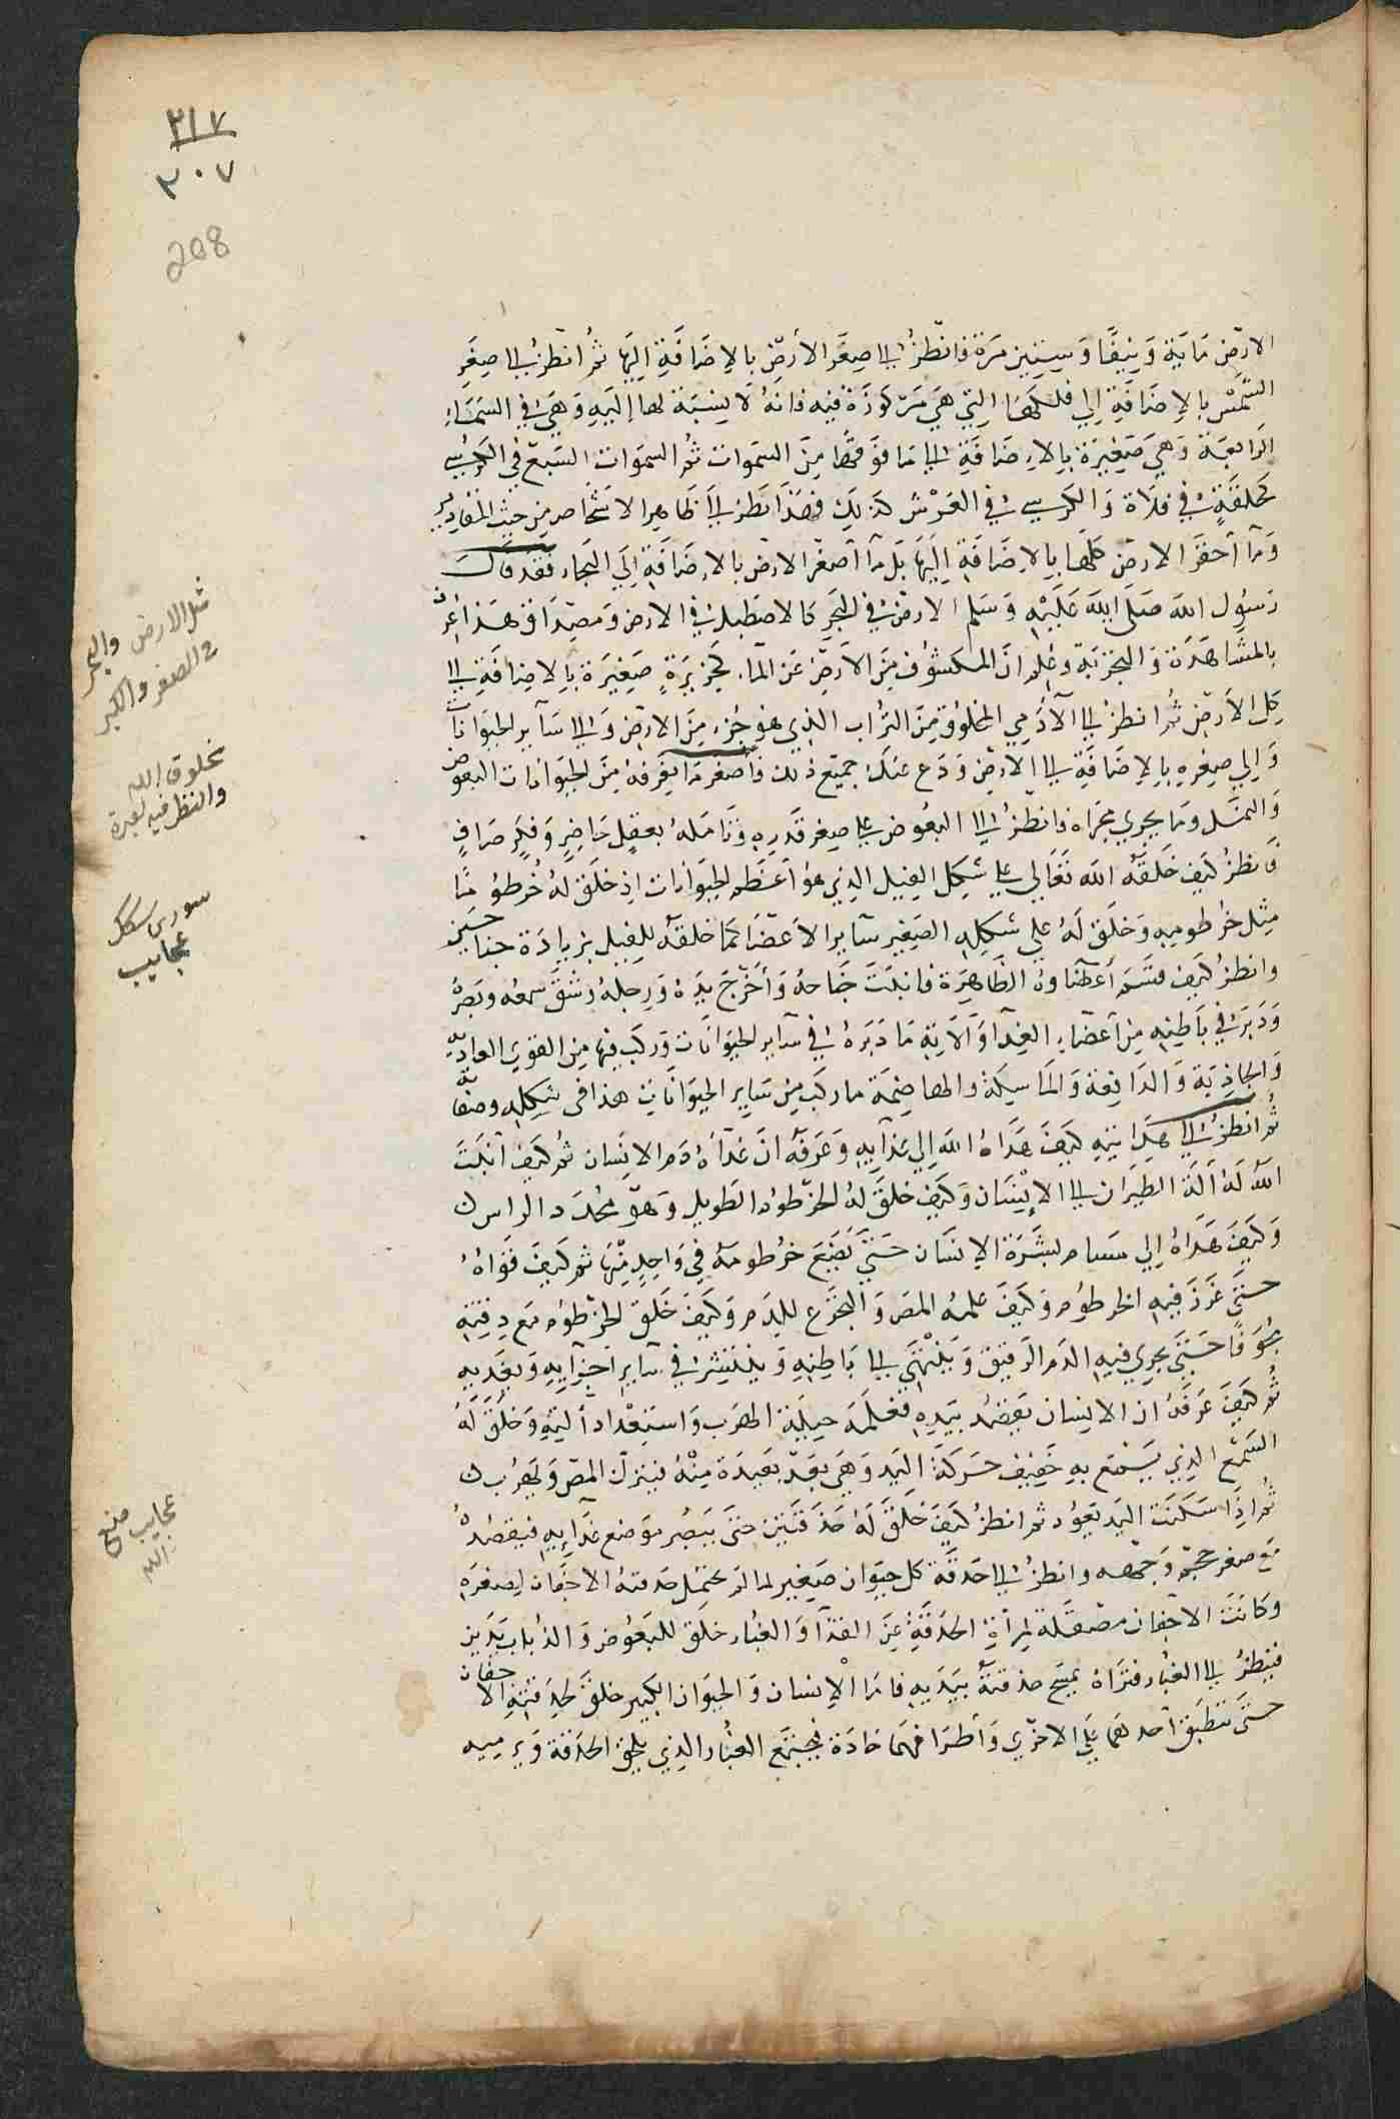 ٣١٧
٣٠٧
208
الارض ماية ونيفا وستين مرة فانظر الى صغر الارض بالاضافة اليها ثم انظر الى صغر
الشمس بالاضافة الى فلكها التي هي مركوزة فيه فانه لا نسبة لها اليه وهي في السماء
الرابعة وهي صغيرة بالاضافة الى ما فوقها من السموات ثم السموات السبع في الكرسي
كحلقة في فلاة والكرسي في العرش كذلك فهذا نظر الى ظاهر الاشخاص من حيث المقادير
وما احقر الارض كلها بالاضافة اليها بل ما اصغر الارض بالاضافة الى البحار فقد قال
رسول الله صلى الله عليه وسلم الارض في البحر كالاصطبل في الارض ومصداق هذا عرف
بالمشاهدة والتجربة وعلم ان المكشوف من الارض عن الماء كجزيرة صغيرة بالاضافة الى
كل الارض ثم انظر الى الآدمي المخلوق من التراب الذي هو جزء من الارض والى ساير الحيوانات
والى صغره بالاضافة الى الارض ودع عنك جميع ذلك فاصغر ما يعرفه من الحيوانات البعوض
والنمل وما يجري مجراه فانظر الى البعوض على صغر قدره وتامله بعقل حاضر وفكر صاف
فانظر كيف خلقه الله تعالى على شكل الفيل الذي هو اعظم الحيوانات اذ خلق له خرطوما
مثل خرطومه وخلق له على شكله الصغير ساير الاعضا كما خلقه للفيل بزيادة جناحين
وانظر كيف قسم اعضاوه الظاهرة فانبت جناحه واخرج يده ورجله وشق سمعه وبصره
ودبر في باطنه من اعضاء الغذاء وآلاته ما دبره في ساير الحيوانات وركب فيها من القوى الغاذية
والجاذبة والدافعة والماسكة والهاضمة ما ركب من ساير الحيوانات هذا في شكله وصفاته
ثم انظر الى هدايته كيف هداه الله الى غذايه وعرفه ان غذاه دم الانسان ثم كيف انبت
الله له آلة الطيران الى الانسان وكيف خلق له الخرطوم الطويل وهو محدد الراس
وكيف هداه الى مسام بشرة الانسان حتى يضع خرطومه في واحد منها ثم كيف قواه
حتى غرز فيه الخرطوم وكيف علمه المص والتجرع للدم وكيف خلق الخرطوم مع دقته
مجوفا حتى يجري فيه الدم الرقيق وينتهي الى باطنه وينتشر في ساير اجزايه ويغذيه
ثم كيف عرفه ان الانسان يقصده بيده فعلمه حيلة الهرب واستعداد آلته وخلق له
السمع الذي يسمع به خفيف حركة اليد وهي بعد بعيدة منه فيترك المص ويهرب
ثم اذا سكنت اليد يعود ثم انظر كيف خلق له حدقتين حتى يبصر موضع غذايه فيقصده
مع صغر حجم وجهه وانظر الى حدقة كل حيوان صغير لما لم تحتمل حدقته الاجفان لصغره
وكانت الاجفان مصقلة لمرآة الحدقة عن القذا والغبار خلق للبعوض والذباب يدين
فينظر الى الغبار فتراه يمسح حدقته بيديه فاما الانسان والحيوان الكبير خلق لحدقته الاجفان
حتى تنطبق احدهما على الاخرى واطرافهما حادة فيجتمع الغبار الذي يلحق الحدقة ويرميه
مثل الارض والبحر
في الصغر والكبر
مخلوق الله
والنظر فيه لعبرة
عجايب
عجايب صنع
الله